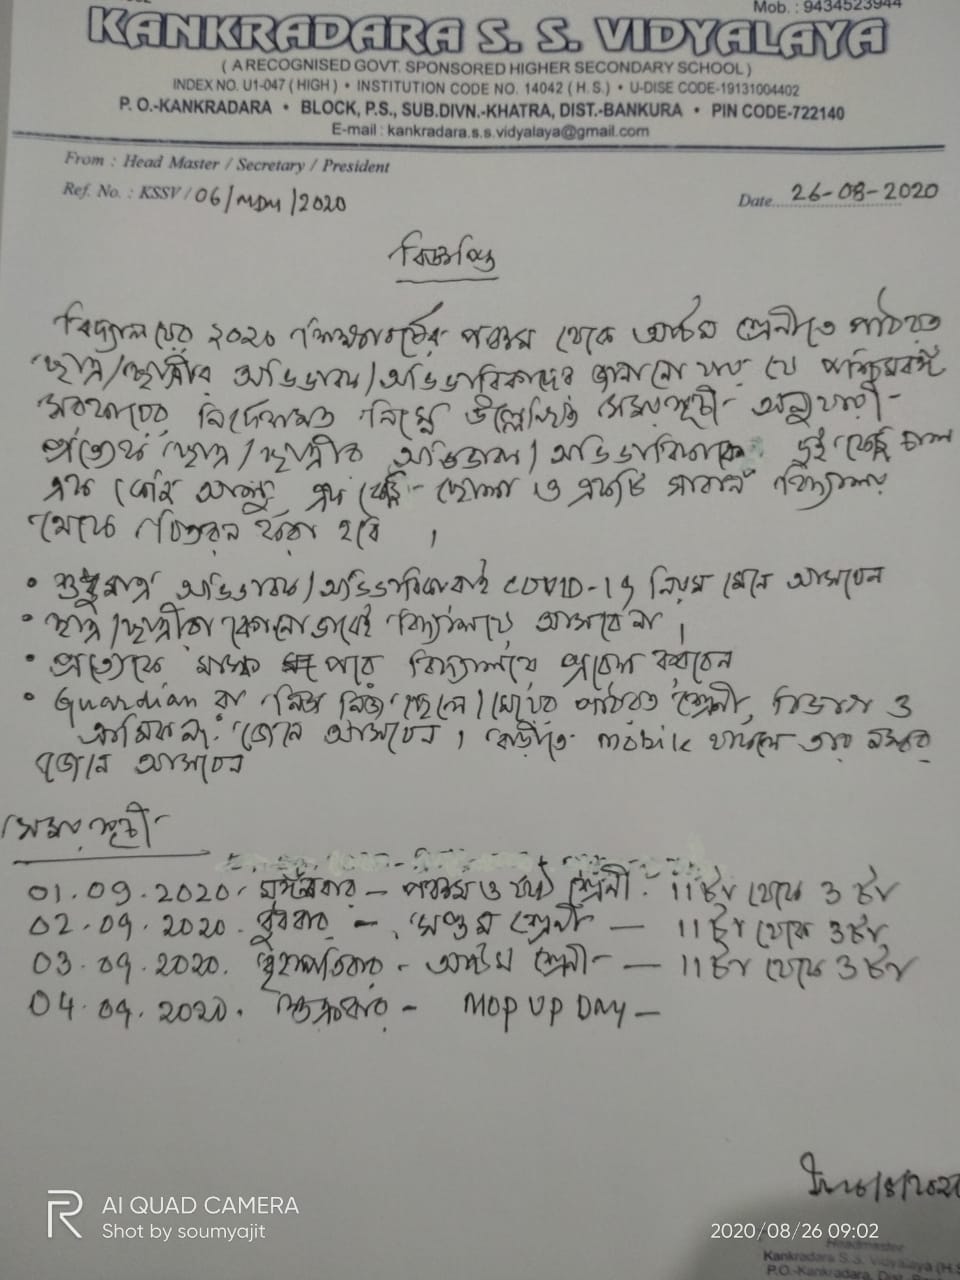 Mob. : 9434523944
KANKRADARA S. S. VIDYALAYA
( A RECOGNISED GOVT. SPONSORED HIGHER SECONDARY SCHOOL )
INDEX NO. U1-047 ( HIGH ) • INSTITUTION CODE NO. 14042 ( H.S. ) • U-DISE CODE-19131004402
P. O.-KANKRADARA • BLOCK, P.S., SUB.DIVN.-KHATRA, DIST.-BANKURA • PIN CODE-722140
E-mail : kankradara.s.s.vidyalaya@gmail.com
From : Head Master / Secretary / President
Ref. No. : KSSV/06/MDM/2020
Date 26-08-2020
বিজ্ঞপ্তি
বিদ্যালয়ের ২০২০ শিক্ষাবর্ষের পঞ্চম থেকে অষ্টম শ্রেনীতে পাঠরত
ছাত্র/ছাত্রীর অভিভাবক/অভিভাবিকাদের জানানো যায় যে পশ্চিমবঙ্গ
সরকারের নির্দেশমত নিম্নে উল্লেখিত সময়সূচী অনুযায়ী
প্রত্যেক ছাত্র/ছাত্রীর অভিভাবক/অভিভাবিকাকে দুই কেজি চাল
এক কেজি আলু, এক কেজি ছোলা ও একটি সাবান বিদ্যালয়
থেকে বিতরন করা হবে ।
• শুধুমাত্র অভিভাবক/অভিভাবিকারাই COVID-19 নিয়ম মেনে আসবেন
• ছাত্র/ছাত্রীরা কোনোভাবেই বিদ্যালয়ে আসবে না ।
• প্রত্যেকে মাস্ক পরে বিদ্যালয়ে প্রবেশ করবেন
• Guardian রা নিজ নিজ ছেলে/মেয়ের পাঠরত শ্রেনী, বিভাগ ও
ক্রমিক নং জেনে আসবেন । বাড়ীতে mobile থাকলে তার নম্বর
জেনে আসবেন
সময়সূচী
01.09.2020. মঙ্গলবার - পঞ্চম ও ষষ্ঠ শ্রেনী. 11 টা থেকে 3 টা
02.09.2020. বুধবার - সপ্তম শ্রেনী — 11 টা থেকে 3 টা
03.09.2020. বৃহস্পতিবার - অষ্টম শ্রেনী — 11 টা থেকে 3 টা
04.09.2020. শুক্রবার - MOP UP DAY —
Headmaster
Kankradara S.S. Vidyalaya (H.S
P.O.-Kankradara,
AI QUAD CAMERA
Shot by soumyajit
2020/08/26 09:02